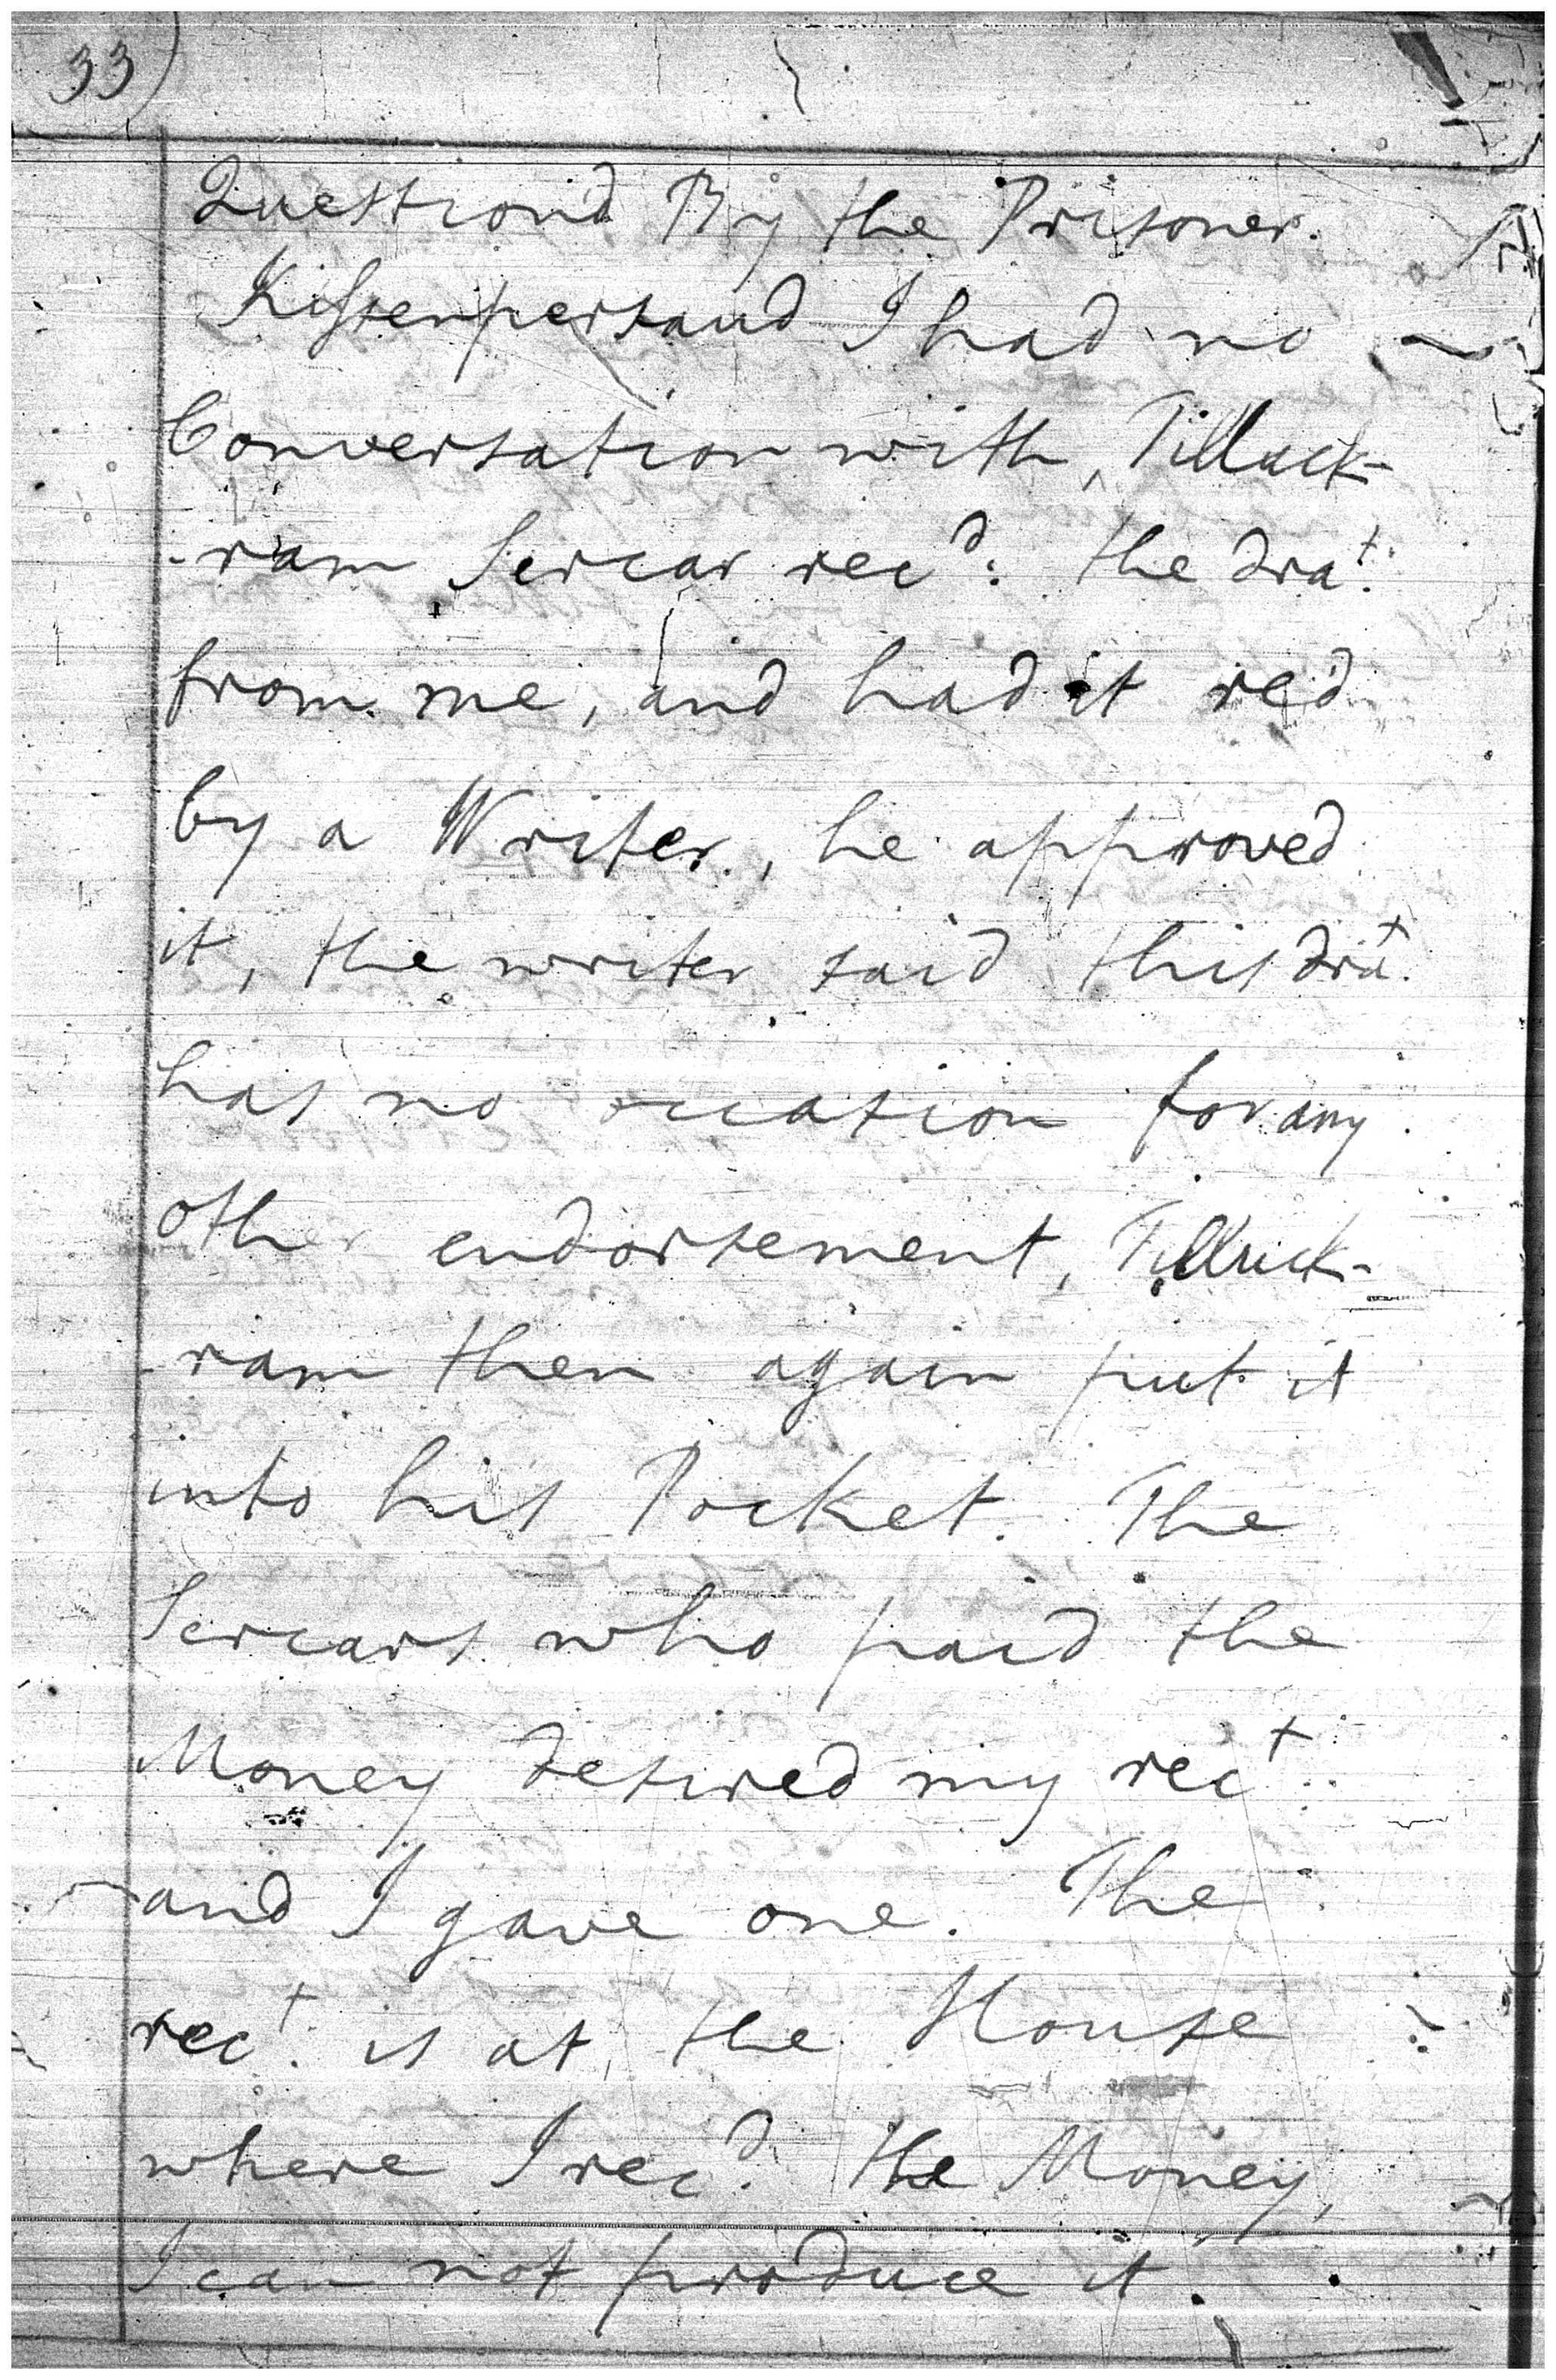 33)
Questiond By the Prisoner.
Kissenpersaud I had no
Conversation with, Tilluck-
-ram Sercar rec^d: the dra^t.
from me, and had it red
by a Writer, he approved
it, the writer said this dra^t.
has no occasion for any
other endorsement, Tilluck-
-ram then again put it
into his Pocket. The
Sercars who paid the
Money desired my rec^t.
and I gave one. The
rec^t. is at the House
where I rec^d. the Money,
I can not produce it.